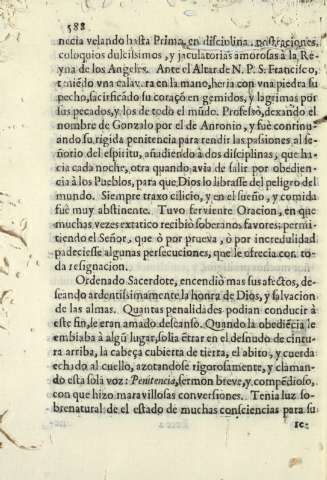 588
necia velando hasta Prima, en disciplina, postraciones,
coloquios dulcissimos, y jaculatorias amorosas à la Re-
yna de los Angeles. Ante el Altar de N. P. S. Francisco,
teniēdo vna calavera en la mano, heria con vna piedra su
pecho, sacrificādo su coraçō en gemidos, y lagrimas por
sus pecados, y los de todo el mūdo. Professò, dexādo el
nombre de Gonzalo por el de Antonio, y fuè continu-
ando su rigida penitencia para rendir las passiones al se-
ñorio del espiritu, añadiendo à dos disciplinas, que ha-
cia cada noche, otra quando avia de salir por obedien-
cia à los Pueblos, para que Dios lo librasse del peligro del
mundo. Siempre traxo cilicio, y en el sueño, y comida
fuè muy abstinente. Tuvo ferviente Oracion, en que
muchas vezes extatico recibiò soberanos favores; permi-
tiendo el Señor, que ò por prueva, ò por incredulidad
padeciesse algunas persecuciones, que le ofrecia con to-
da resignacion.
Ordenado Sacerdote, encendiò mas sus afectos, de-
seando ardentissimamente la honra de Dios, y salvacion
de las almas. Quantas penalidades podian conducir à
este fin, le eran amado descanso. Quando la obediēcia le
embiaba à algū lugar, solia ētrar en el desnudo de cintu-
ra arriba, la cabeça cubierta de tierra, el abito, y cuerda
echado al cuello, azotandose rigorosamente, y claman-
do esta sola voz: Penitencia, sermon breve, y compēdioso,
con que hizo maravillosas conversiones. Tenia luz so-
brenatural de el estado de muchas consciencias para su